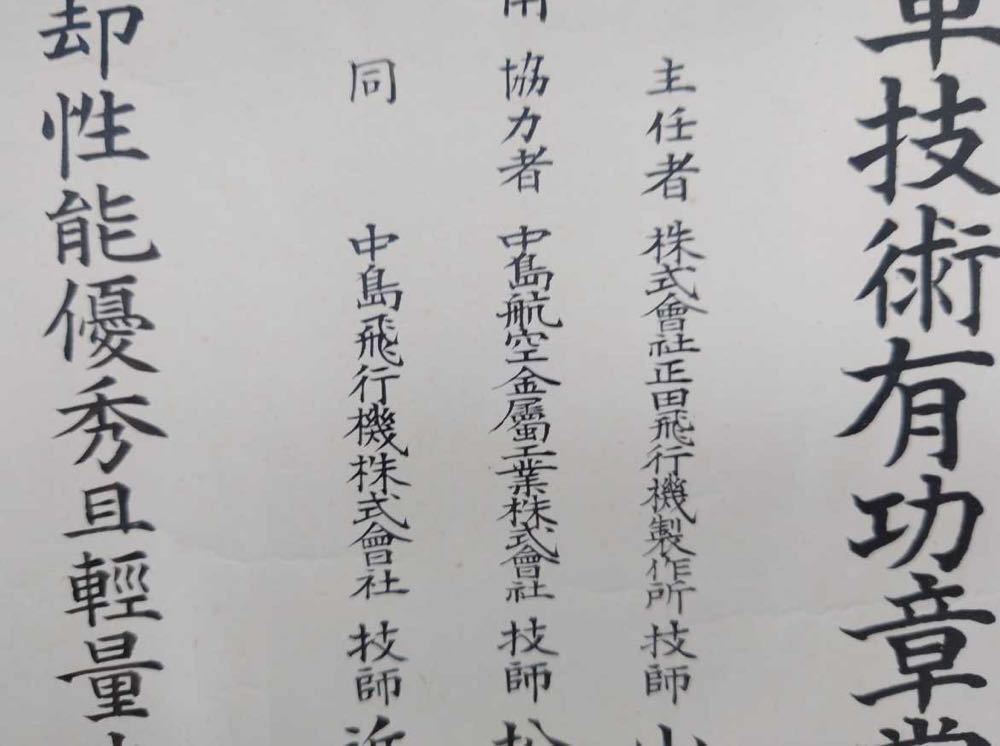 軍技術有功章
主任者 株式會社正田飛行機製作所 技師
協力者 中島航空金屬工業株式會社 技師
同 中島飛行機株式會社 技師
却性能優秀且輕量